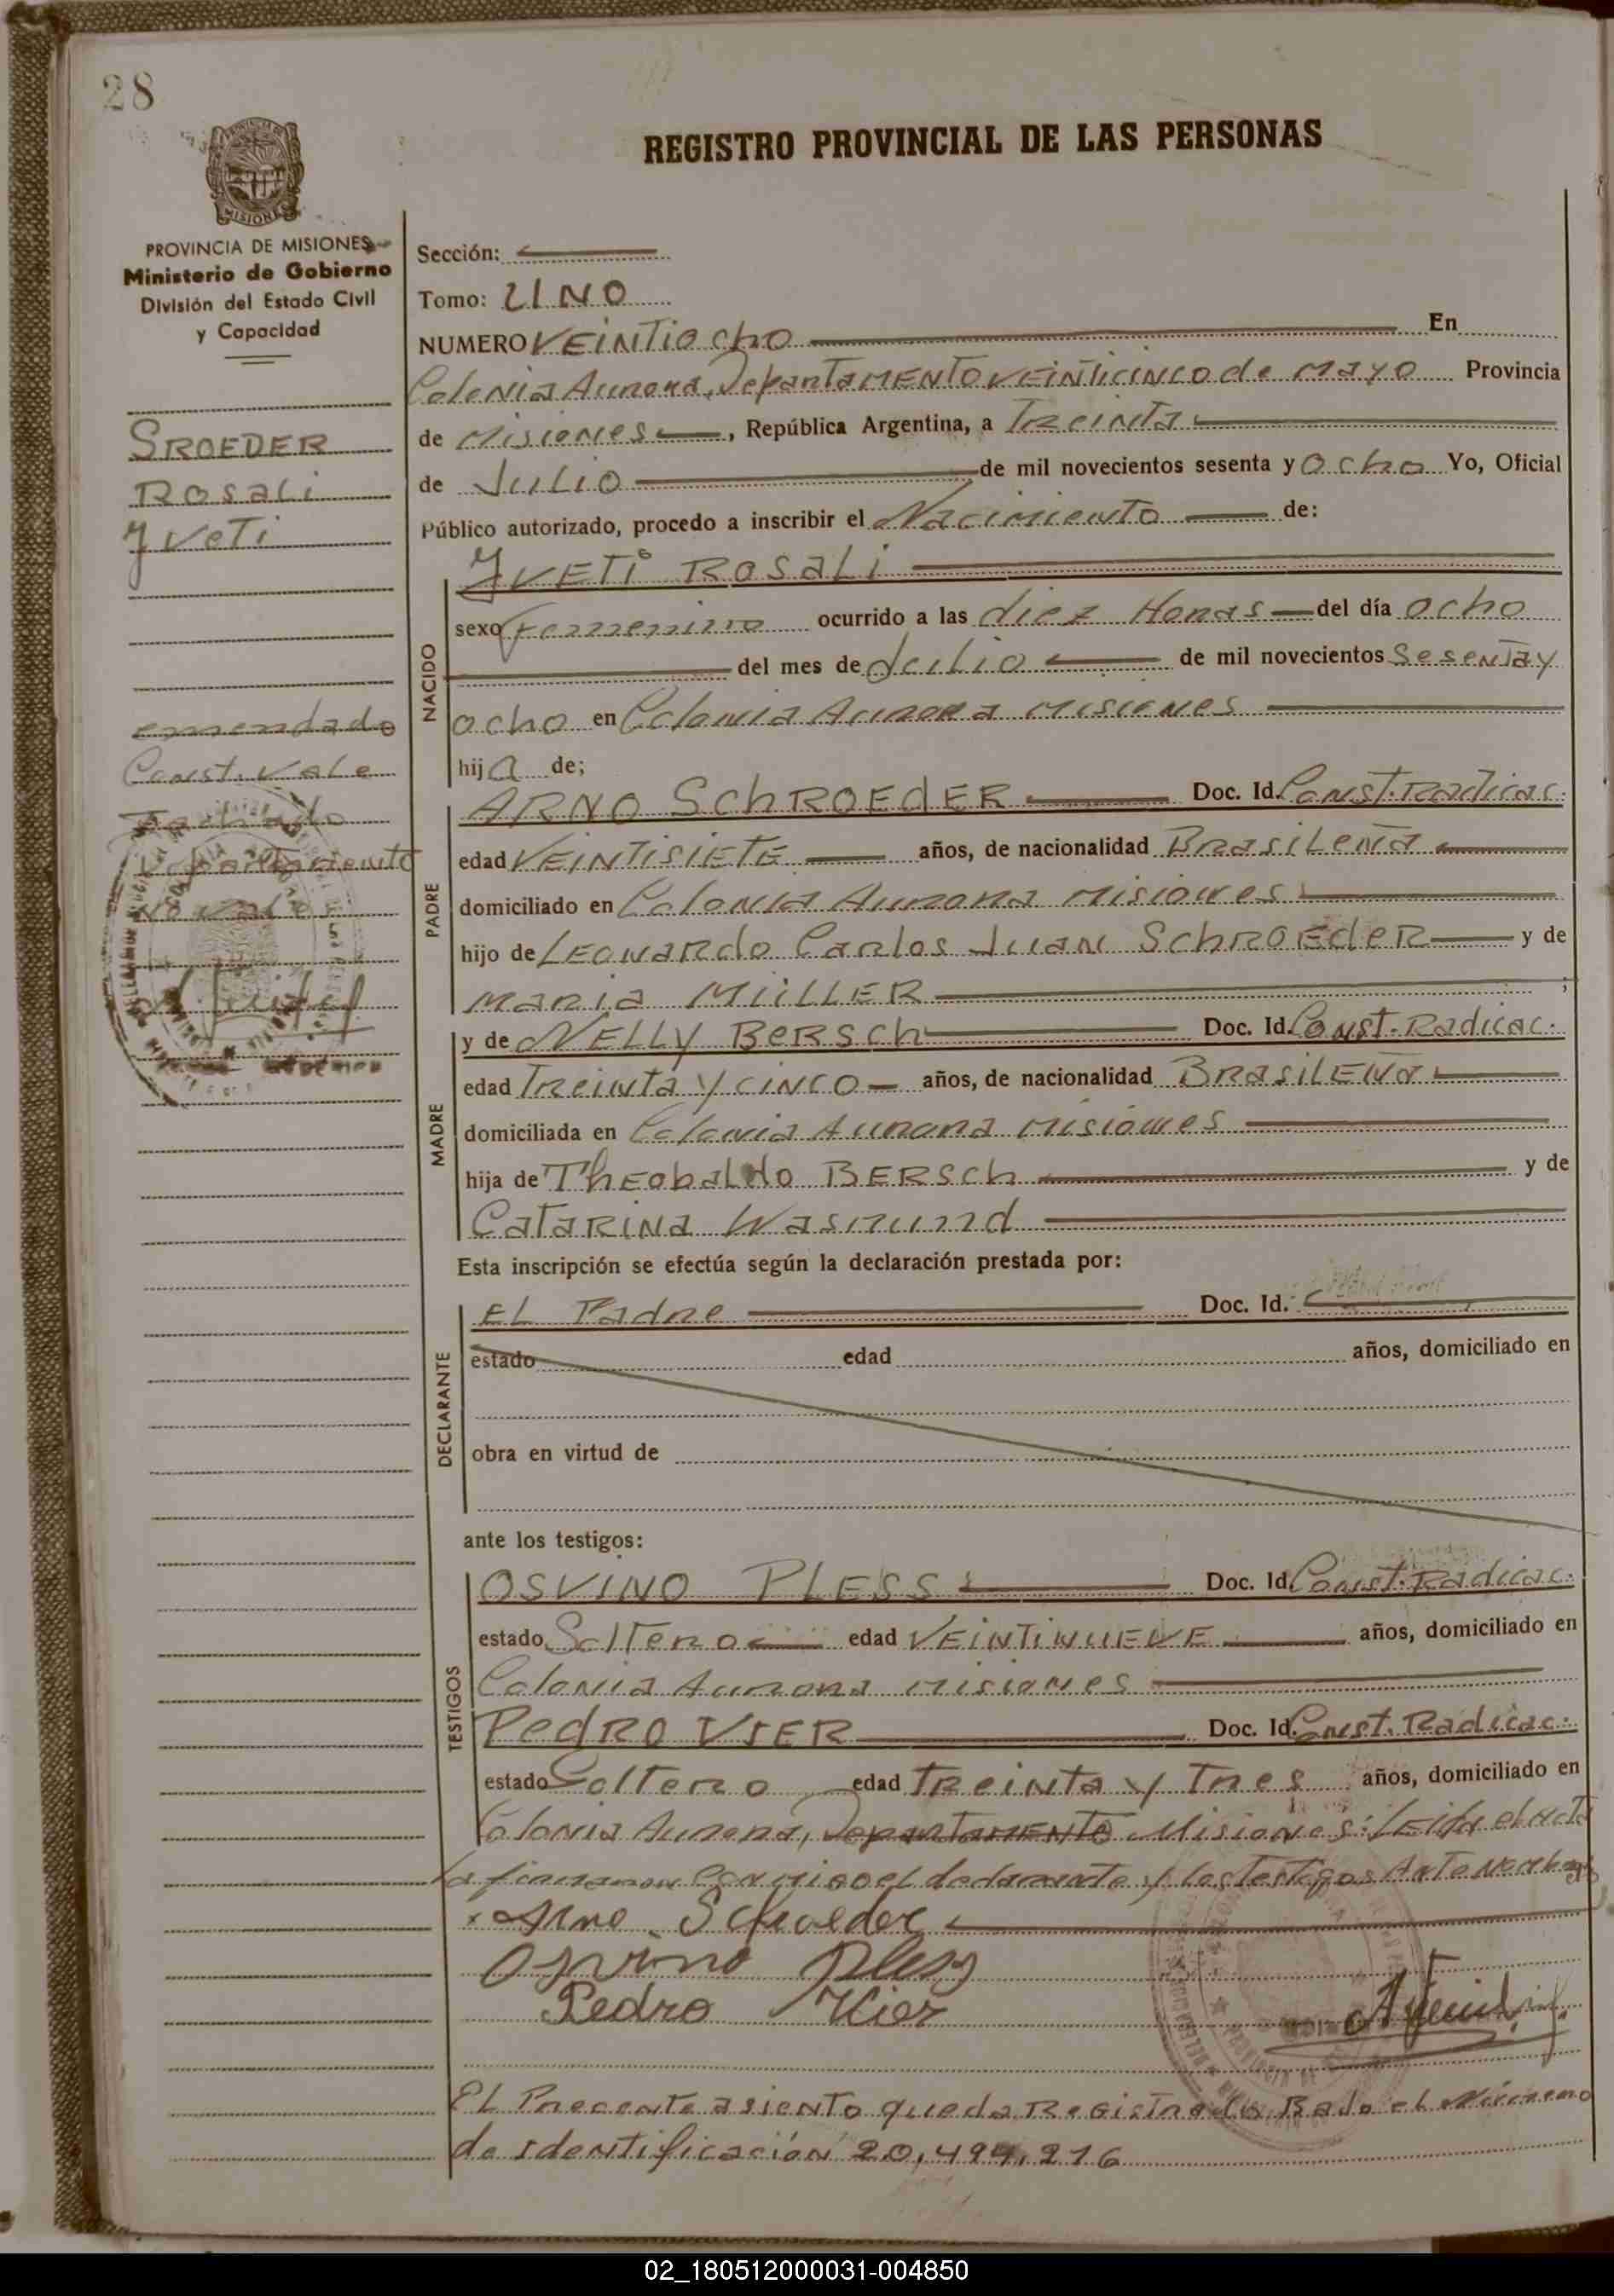 28
REGISTRO PROVINCIAL DE LAS PERSONAS
MISIONES
PROVINCIA DE MISIONES
Ministerio de Gobierno
División del Estado Civil
y Capacidad
SROEDER
Rosali
Yveti
emendado
Const. vale
Tachado
Departamento
No vale
Sección:
Tomo: UNO
NUMERO VEINTIOCHO En
Colonia Aurora, Departamento VEINTICINCO de MAYO Provincia
de Misiones, República Argentina, a Treinta
de Julio de mil novecientos sesenta y ocho Yo, Oficial
Público autorizado, procedo a inscribir el Nacimiento de:
YVETI ROSALI
NACIDO
sexo Femenino ocurrido a las diez Horas del día ocho
del mes de Julio de mil novecientos Sesenta y
ocho en Colonia Aurora Misiones
hija de;
PADRE
ARNO SCHROEdER Doc. Id. Const. Radicac.
edad VEINTISIETE años, de nacionalidad Brasileña
domiciliado en Colonia Aurora Misiones
hijo de Leonardo Carlos Juan SCHROEdER y de
Maria MüLLER ;
MADRE
y de NELLY BERSch Doc. Id. Const. Radicac.
edad Treinta y cinco años, de nacionalidad BRASILEÑA
domiciliada en Colonia Aurora Misiones
hija de Theobaldo BERSch y de
CATARINA Wasmund
Esta inscripción se efectúa según la declaración prestada por:
DECLARANTE
EL Padre Doc. Id.
estado edad años, domiciliado en
obra en virtud de
ante los testigos:
TESTIGOS
OSVINO PLESS Doc. Id. Const. Radicac.
estado Soltero edad VEINTINUEVE años, domiciliado en
Colonia Aurora Misiones
PedRO VIER Doc. Id. Const. Radicac.
estado Soltero edad Treinta y Tres años, domiciliado en
Colonia Aurora, Departamento Misiones: Leida el Acta
la firmaron conmigo el declarante y los testigos Ante
Arno Schroeder
Osvino Pless
Pedro Vier
EL Precente asiento queda Registrado Bado el Número
de Identificación 20,494,216
02_180512000031-004850